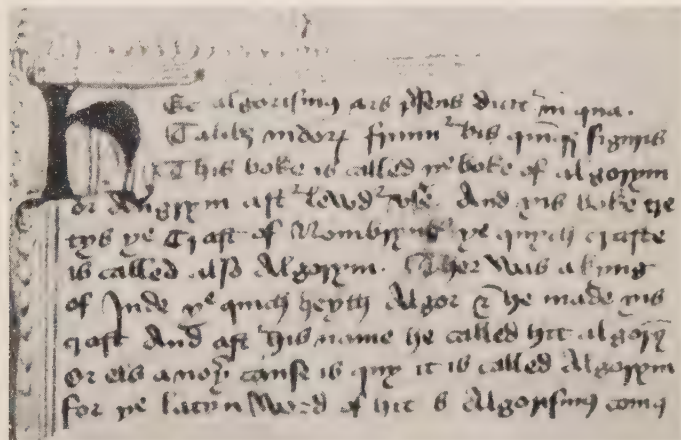 Hec algorismꝰ ars p̃sens dicit᷑ in qua.
Talibꝫ indoꝝ fruim᷑ bis quinqꝫ figuris
This boke is called þe boke of algorym
or Augrym aft᷑ lewd᷑ vse. And þis boke tre
tys þe Craft of Nombryng þe quych crafte
is called also Algorym. Ther was a kyng
of Inde þe quich heyth Algor & he made þis
craft And aft᷑ his name he called hit algorȳ
or els anoþ᷑ cause is quy it is called Algorym
for þe latyn word of hit s Algorismꝰ comeȝ